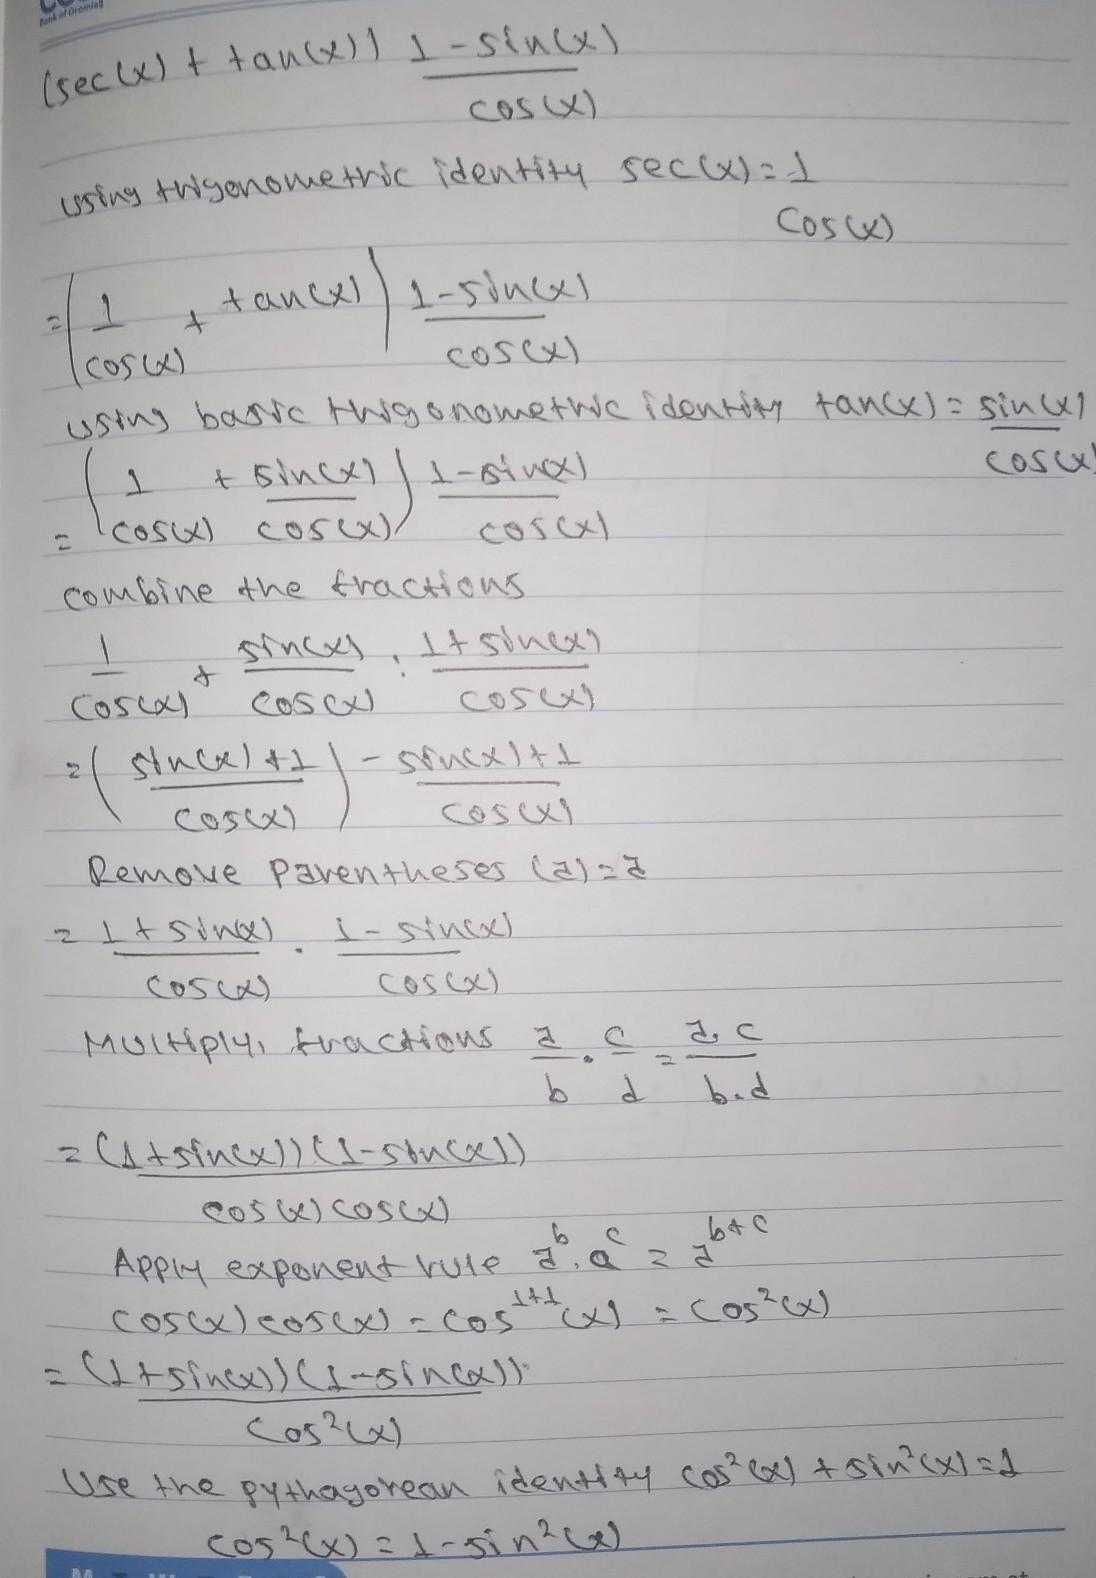 Bank of Oromia
(sec(x) + tan(x)) 1 - sin(x)
cos(x)
using trigonometric identity sec(x) = 1
cos(x)
= (1 + tan(x)) 1 - sin(x)
cos(x) cos(x)
using basic trigonometric identity tan(x) = sin(x)
cos(x)
(1 + sin(x)) 1 - sin(x)
= cos(x) cos(x) cos(x)
combine the fractions
1 + sin(x) : 1 + sin(x)
cos(x) cos(x) cos(x)
= (sin(x) + 1) - sin(x) + 1
cos(x) cos(x)
Remove Parentheses (a) = a
= 1 + sin(x) . 1 - sin(x)
cos(x) cos(x)
Multiply, fractions a . c = a. c
b d b.d
= (1 + sin(x)) (1 - sin(x))
cos(x) cos(x)
Apply exponent rule a^b . a^c = a^b+c
cos(x) cos(x) = cos^1+1(x) = cos²(x)
= (1 + sin(x)) (1 - sin(x))
cos²(x)
Use the pythagorean identity cos²(x) + sin²(x) = 1
cos²(x) = 1 - sin²(x)